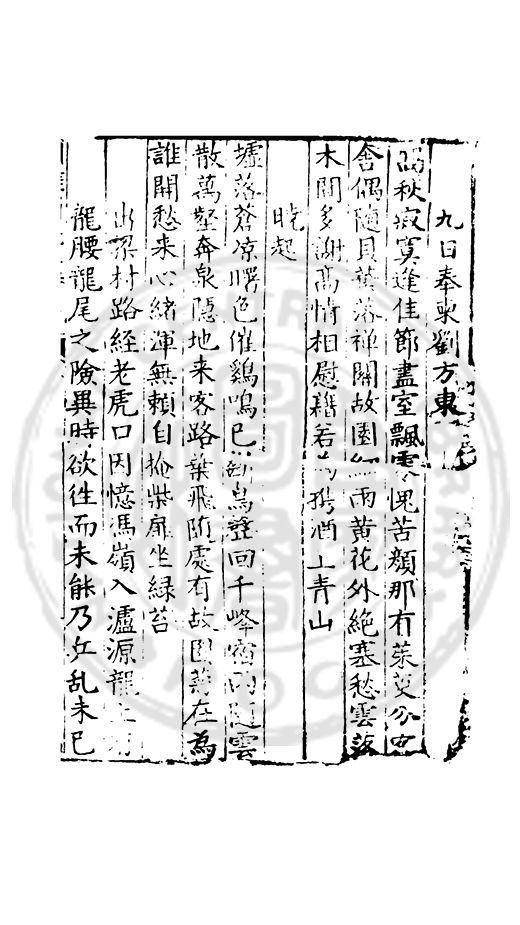 九日奉柬劉方東
秋寂寞逢佳節盡室飄零愧苦顏那有茱萸分
舍偶隨貝葉落禪關故園細雨黃花外絕塞愁雲落
木間多謝高情相慰藉若為携酒上青山
曉起
墟落蒼凉曙色催鷄鳴已鳥聲回千峰宿雨隨雲
散萬壑奔泉隱地来客路葉飛随處有故園菊在為
誰開愁来心緒渾無賴自掩柴扉坐緑苔
出梁村路経老虎口因憶馮嶺入瀘源龍上
龍腰龍尾之險異時欲往而未能乃兵乱未已